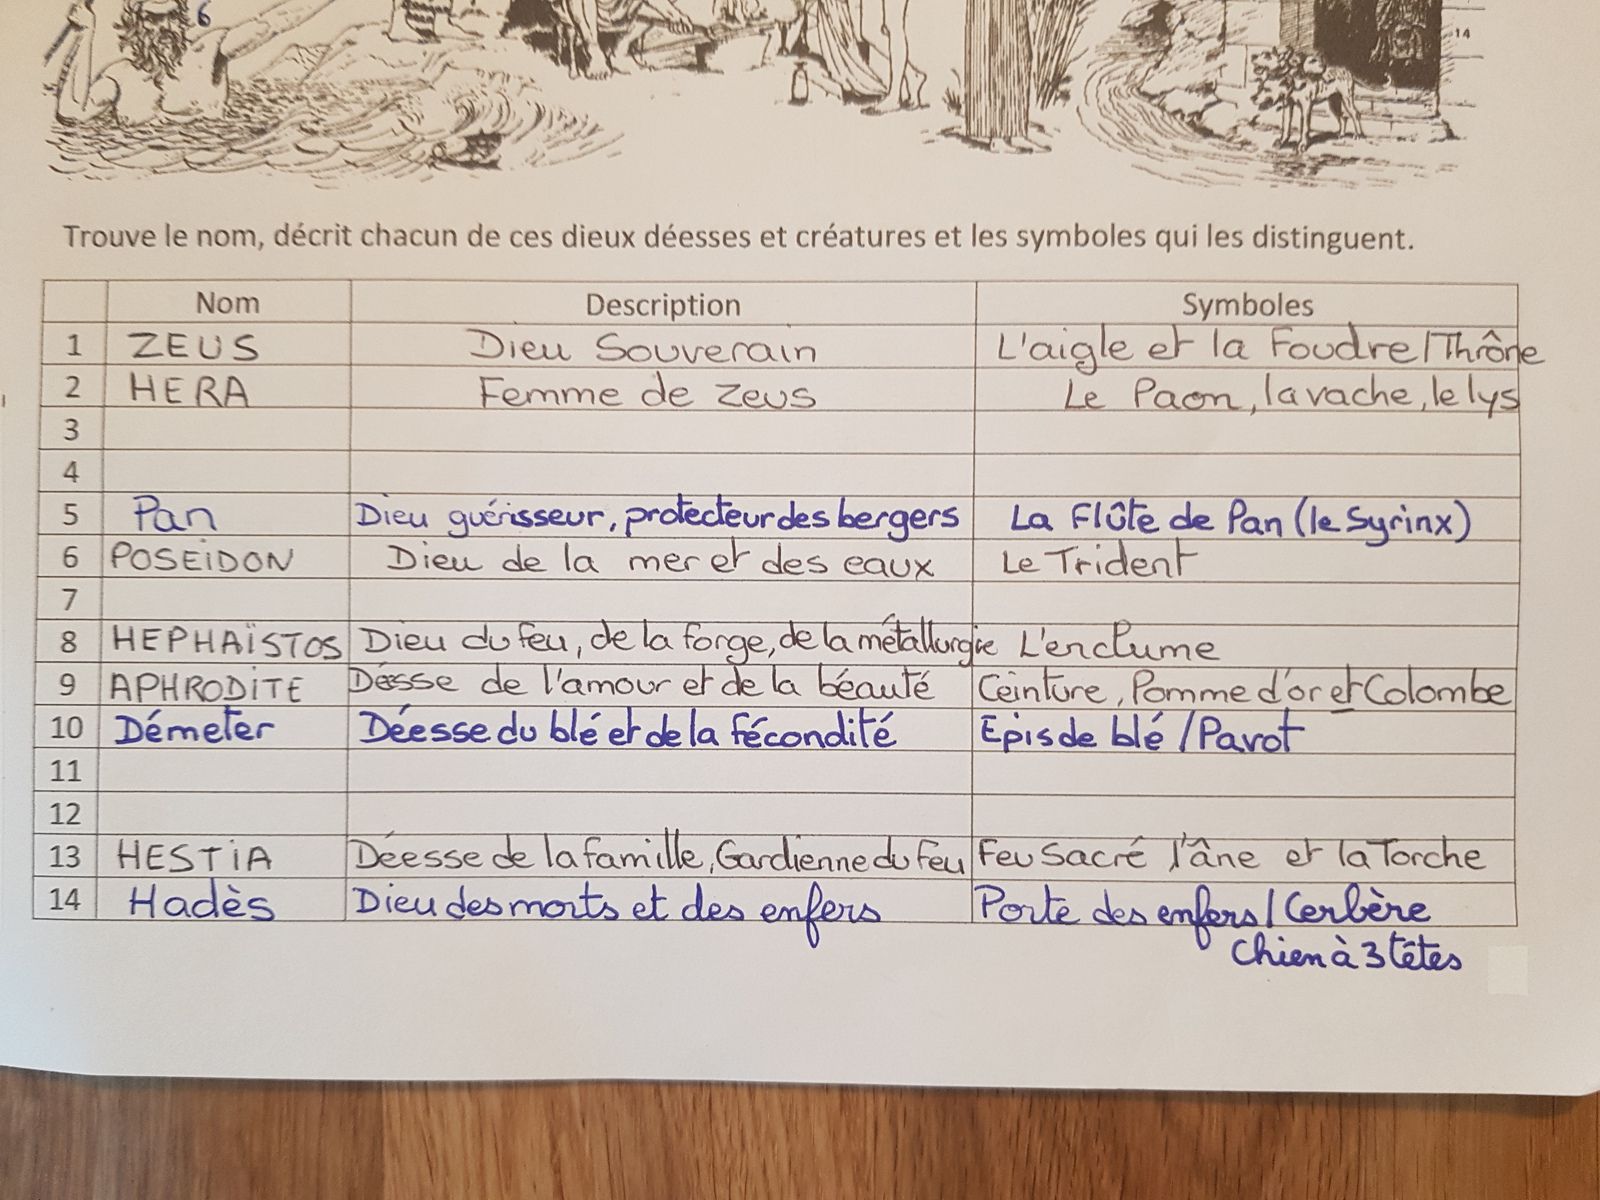 6
14
Trouve le nom, décrit chacun de ces dieux déesses et créatures et les symboles qui les distinguent.
Nom Description Symboles
1 ZEUS Dieu Souverain L'aigle et la Foudre/Thrône
2 HERA Femme de Zeus Le Paon, la vache, le lys
3
4
5 Pan Dieu guérisseur, protecteur des bergers La Flûte de Pan (le Syrinx)
6 POSEIDON Dieu de la mer et des eaux Le Trident
7
8 HEPHAÏSTOS Dieu du feu, de la forge, de la métallurgie L'enclume
9 APHRODITE Désse de l'amour et de la béauté Ceinture, Pomme d'or et Colombe
10 Démeter Déesse du blé et de la fécondité Epis de blé / Pavot
11
12
13 HESTIA Déesse de la famille, Gardienne du Feu Feu Sacré l'âne et la Torche
14 Hadès Dieu des morts et des enfers Porte des enfers / Cerbère
Chien à 3 têtes